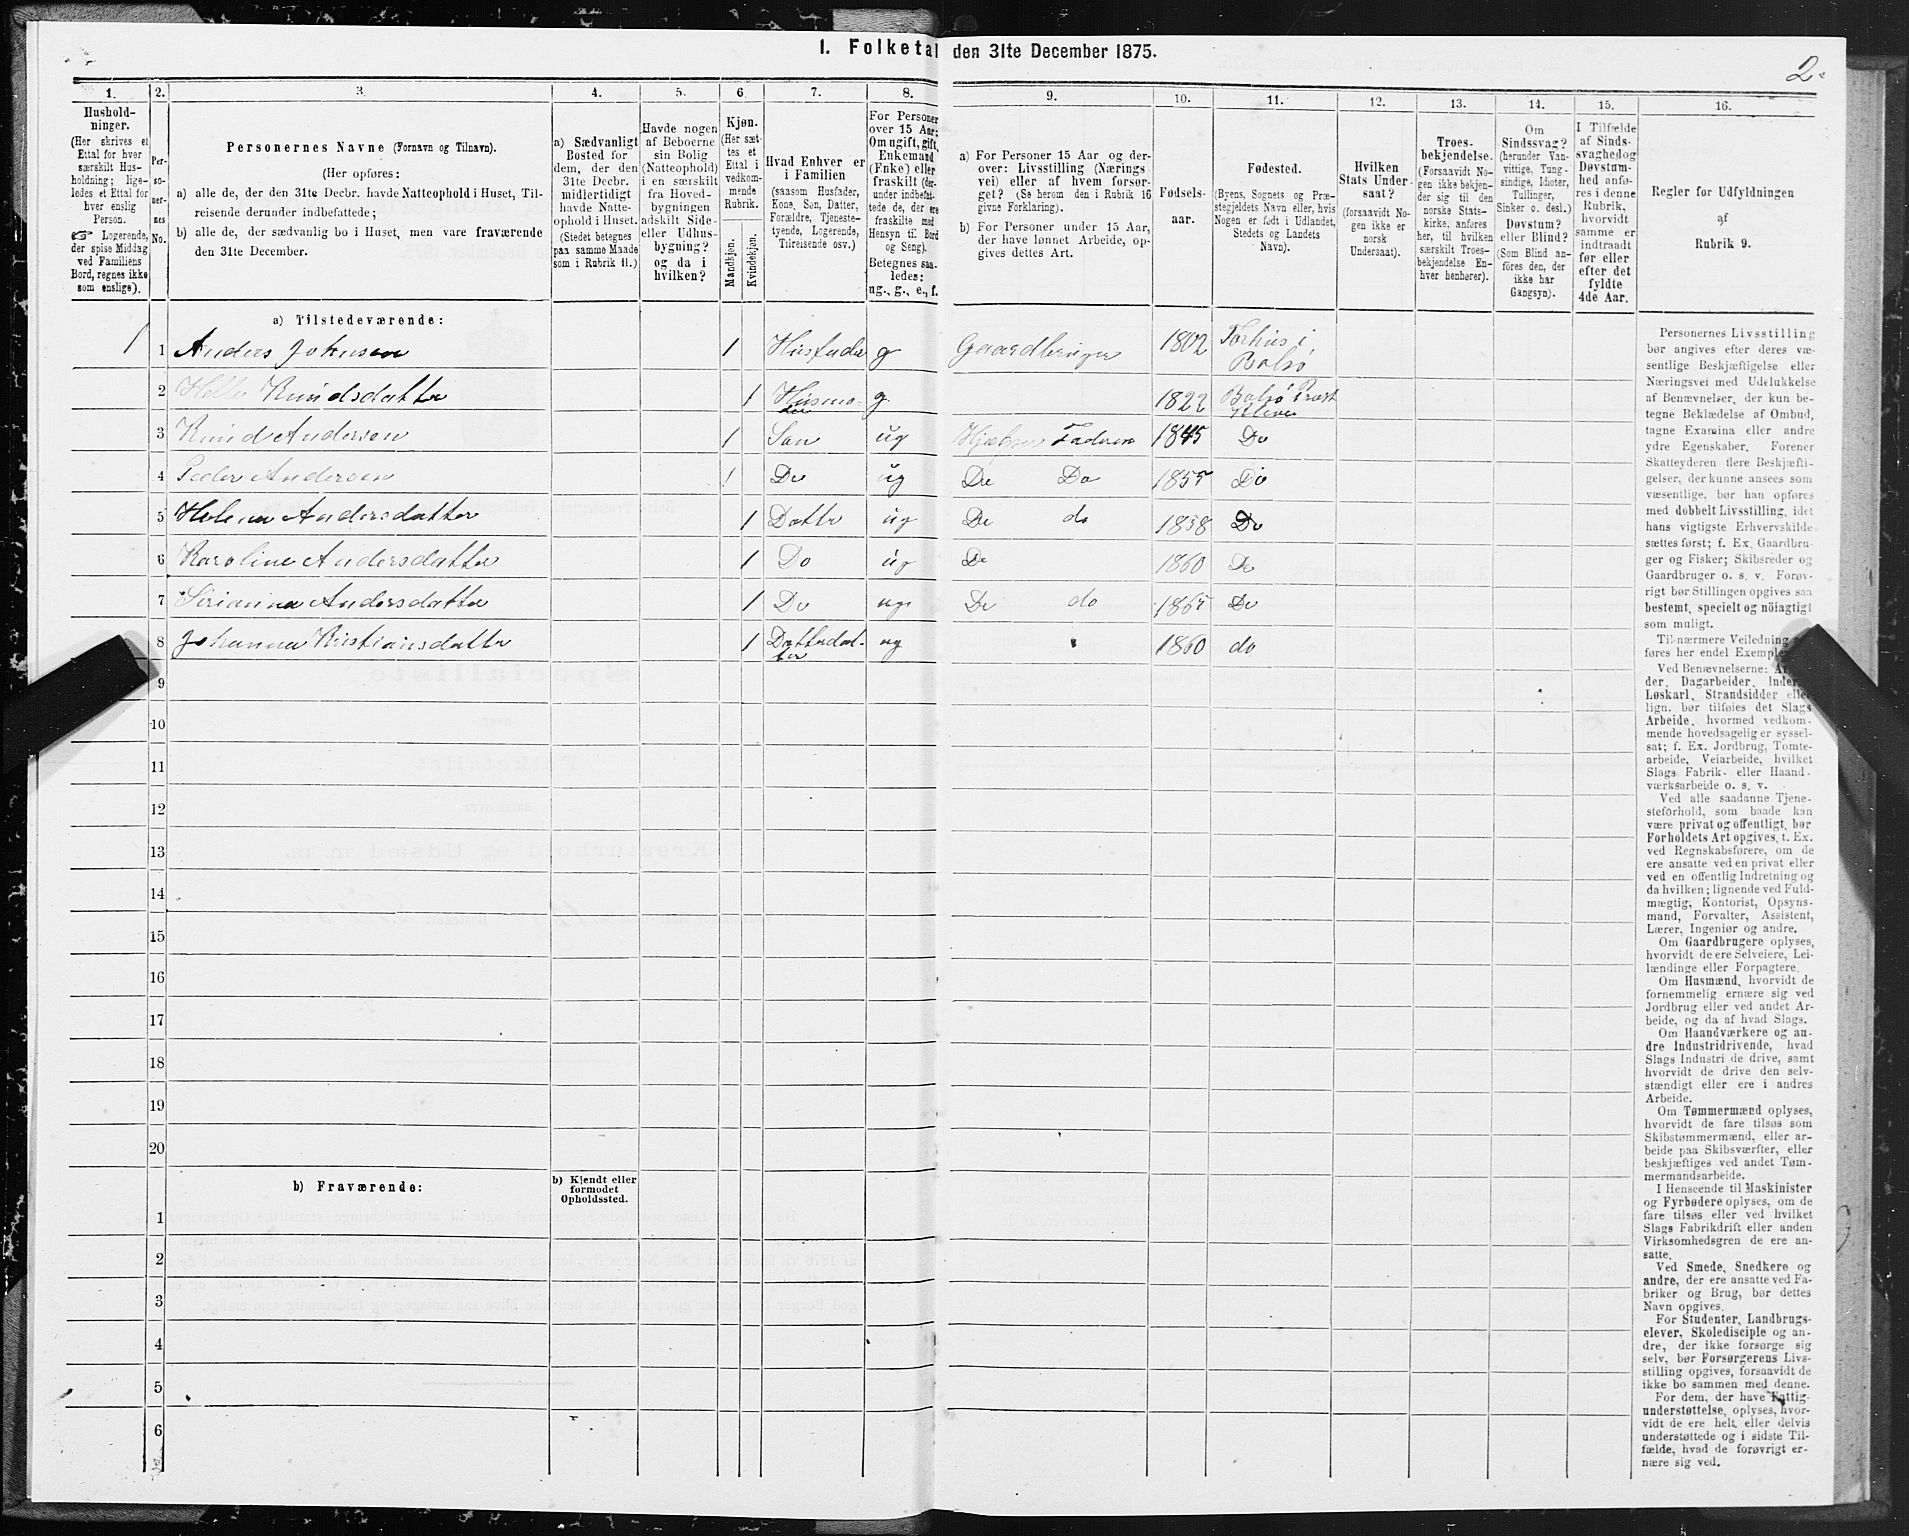 1. Folketal den 31te December 1875.
2.
1.
Hushold-
ninger.
(Her skrives et
Ettal for hver
særskilt Hus-
holdning; lige-
ledes et Ettal for
hver enslig
Person.
☞ Logerende,
der spise Middag
ved Familiens
Bord, regnes ikke
som enslige).
2.
Per-
so-
ner-
nes
No.
3.
Personernes Navne (Fornavn og Tilnavn).
(Her opføres:
a) alle de, der den 31te Decbr. havde Natteophold i Huset, Til-
reisende derunder indbefattede;
b) alle de, der sædvanlig bo i Huset, men vare fraværende
den 31te December.
4.
a) Sædvanligt
Bosted for
dem, der den
31te Decbr.
midlertidigt
havde Natte-
ophold i Huset.
(Stedet betegnes
paa samme Maade
som i Rubrik 11.)
5.
Havde nogen
af Beboerne
sin Bolig
(Natteophold)
i en særskilt
fra Hoved-
bygningen
adskilt Side-
eller Udhus-
bygning?
og da i
hvilken?
6.
Kjøn.
(Her sæt-
tes et
Ettal i
vedkom-
mende
Rubrik.
Mandkjøn.
Kvindekjøn.
7.
Hvad Enhver er
i Familien
(saasom Husfader,
Kone, Søn, Datter,
Forældre, Tjeneste-
tyende, Logerende,
Tilreisende osv.)
8.
For Personer
over 15 Aar:
Om ugift, gift,
Enkemand
(Enke) eller
fraskilt (der-
under indbefat-
tede de, der ere
fraskilte med
Hensyn til Bord
og Seng).
Betegnes saa-
ledes:
ug., g., e., f.
9.
a) For Personer 15 Aar og der-
over: Livsstilling (Nærings-
vei) eller af hvem forsør-
get? (Se herom den i Rubrik 16
givne Forklaring).
b) For Personer under 15 Aar,
der have lønnet Arbeide, op-
gives dettes Art.
10.
Fødsels-
aar.
11.
Fødested.
(Byens, Sognets og Præ-
stegjeldets Navn eller, hvis
Nogen er født i Udlandet,
Stedets og Landets
Navn).
12.
Hvilken
Stats Under-
saat?
(forsaavidt No-
gen ikke er
norsk
Undersaat).
13.
Troes-
bekjendelse.
(Forsaavidt No-
gen ikke bekjen-
der sig til den
norske Stats-
kirke, anføres
her, til hvilken
særskilt Troes-
bekjendelse En-
hver henhører).
14.
Om
Sindssvag?
(herunder Van-
vittige, Tung-
sindige, Idioter,
Tullinger,
Sinker o. desl.)
Døvstum?
eller Blind?
(Som Blind an-
føres den, der
ikke har
Gangsyn).
15.
I Tilfælde
af Sinds-
svaghed og
Døvstum-
hed anfø-
res i denne
Rubrik,
hvorvidt
samme er
indtraadt
før eller
efter det
fyldte
4de Aar.
16.
Regler for Udfyldningen
af
Rubrik 9.
a) Tilstedeværende:
1 1 Anders Johnsen 1 Husfader g Gaardbruger 1802 Torhus i
Balsø
2 Helle Knudsdatter 1 Husmo- g 1822 Balsø Præst
der
3 Knud Andersen 1 Søn ug Hjælper Faderen 1845 Do
4 Peder Andersen 1 Do ug Do Do 1855 Do
5 Helena Andersdatter 1 Datter ug Do do 1858 Do
6 Karoline Andersdatter 1 Do ug Do 1860 Do
7 Andersdatter 1 Do ug Do do 1865 Do
8 Johanna Kristiansdatter 1 Datterdat- ug " 1860 do
ter
9
10
11
12
13
14
15
16
17
18
19
20
b) Fraværende:
b) Kjendt eller
formodet
Opholdssted.
1
2
3
4
5
6
Personernes Livsstilling
bør angives efter deres væ-
sentlige Beskjæftigelse eller
Næringsvei med Udelukkelse
af Benævnelser, der kun be-
tegne Beklædelse af Ombud,
tagne Examina eller andre
ydre Egenskaber. Forener
Skatteyderen flere Beskjæfti-
gelser, der kunne ansees som
væsentlige, bør han opføres
med dobbelt Livsstilling, idet
hans vigtigste Erhvervskilde
sættes først; f. Ex. Gaardbru-
ger og Fisker; Skibsreder og
Gaardbruger o. s. v. Forøv-
rigt bør Stillingen opgives saa
bestemt, specielt og nöiagtigt
som muligt.
Til nærmere Veiledning
føres her endel Exempler
Ved Benævnelserne:
der, Dagarbeider, Inder
Løskarl, Strandsidder eller
lign. bør tilføies det Slags
Arbeide, hvormed vedkom-
mende hovedsagelig er syssel-
sat; f. Ex. Jordbrug, Tomte-
arbeide, Veiarbeide, hvilket
Slags Fabrik- eller Haand-
værksarbeide o. s. v.
Ved alle saadanne Tjene-
steforhold, som baade kan
være privat og offentligt, bør
Forholdets Art opgives, t. Ex.
ved Regnskabsførere, om de
ere ansatte ved en privat eller
ved en offentlig Indretning og
da hvilken; lignende ved Fuld-
mægtig, Kontorist, Opsyns-
mand, Forvalter, Assistent,
Lærer, Ingeniør og andre.
Om Gaardbrugere oplyses,
hvorvidt de ere Selveiere, Lei-
lændinge eller Forpagtere.
Om Husmænd, hvorvidt de
fornemmelig ernære sig ved
Jordbrug eller ved andet Ar-
beide, og da af hvad Slags.
Om Haandværkere og an-
dre Industridrivende, hvad
Slags Industri de drive, samt
hvorvidt de drive den selv-
stændigt eller ere i andres
Arbeide.
Om Tømmermænd oplyses,
hvorvidt de fare tilsøs som
Skibstømmermænd, eller ar-
beide paa Skibsværfter, eller
beskjæftiges ved andet Tøm-
mermandsarbeide.
I Henseende til Maskinister
og Fyrbødere oplyses, om de
fare tilsøs eller ved hvilket
Slags Fabrikdrift eller anden
Virksomhedsgren de ere an-
satte.
Ved Smede, Snedkere og
andre, der ere ansatte ved Fa-
briker og Brug, bør dettes
Navn opgives.
For Studenter, Landbrugs-
elever, Skoledisciple og an-
dre, der ikke forsørge sig
selv, bør Forsørgerens Livs-
stilling opgives, forsaavidt de
ikke bo sammen med denne.
For dem, der have Fattig-
understøttelse, oplyses, hvor-
vidt de ere helt eller delvis
understøttede og i sidste Til-
fælde, hvad de forøvrigt er-
nære sig ved.